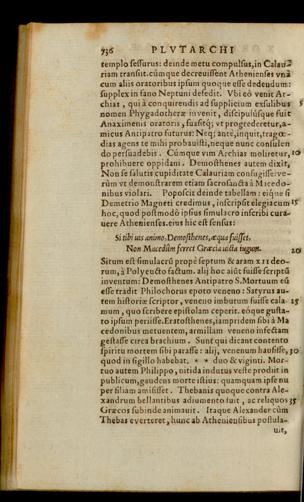 736 PLVTARCHI
templo sessurus: deinde metu compulsus, in Calau
riam transiit. cúmque decreuissent Athenienses vnà
cum aliis oratoribus ipsum quoque esse dedendum:
supplex in fano Neptuni desedit. Vbi eò venit Ar-
chias, qui à conquirendis ad supplicium exsulibus 5
nomen Phygadotheræ invenit, discipulúsque fuit
Anaximenis oratoris, suasítq; vt progrederetur, a-
micus Antipatro futurus: Neq; antè, inquit, tragœ-
dias agens te mihi probauisti, neque nunc consulen
do persuadebis. Cúmque vim Archias moliretur, 10
prohibuere oppidani. Demosthenes autem dixit,
Non se salutis cupiditate Calauriam confugisse: ve-
rùm vt demonstrarem etiam sacrosancta à Macedo-
nibus violari. Poposcit deinde tabellam: eíque si
Demetrio Magneti credimus, inscripsit elegiacum 15
hoc, quod postmodò ipsius simulacro inscribi cura-
uere Athenienses. eius hic est sensus:
Si tibi uis animo, Demosthenes, æqua fuisset,
Non Macedûm ferret Græcia uicta iugum. 20
Situm est simulacrū propè septum & aram XII deo-
rum, à Polyeucto factum. alij hoc aiūt fuisse scriptū
inventum: Demosthenes Antipatro S. Mortuum eū
esse tradit Philochorus epoto veneno: Satyrus au-
tem historiæ scriptor, veneno imbutum fuisse cala- 25
mum, quo scribere epistolam ceperit. eóque gusta-
to ipsum periisse. Eratosthenes, iampridem sibi à Ma
cedonibus metuentem, armillam veneno infectam
gestasse circa brachium. Sunt qui dicant contento
spiritu mortem sibi parasse: alij, venenum hausisse, 30
quod in sigillo habebat. * * duo & viginti. Mor-
tuo autem Philippo, nitida indutus veste prodiit in
publicum, gaudens morte istius: quamquam ipse nu
per filiam amisisset. Thebanis quoque contra Ale-
xandrum bellantibus adiumento fuit, ac reliquos 35
Græcos subinde animauit. Itaque Alexander cùm
Thebas euerteret, hunc ab Atheniensibus postula-
uit,